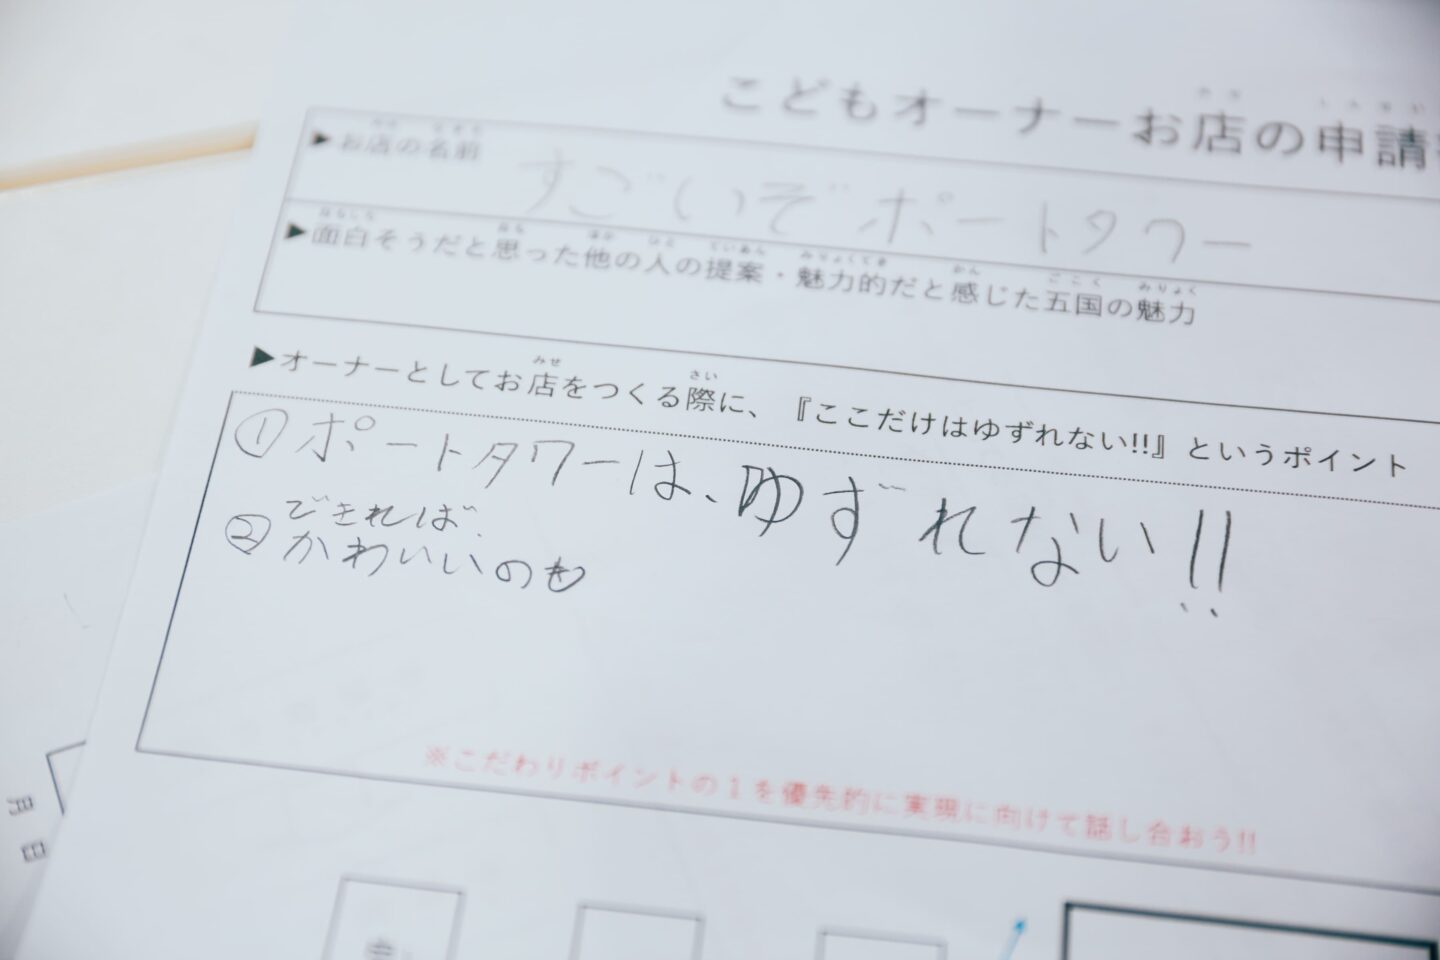 こどもオーナーお店の申請
▶お店の名前
すごいぞポートタワー
▶面白そうだと思った他の人の提案・魅力的だと感じた五国の魅力
▶オーナーとしてお店をつくる際に、『ここだけはゆずれない!!』というポイント
①ポートタワーは、ゆずれない!!
できれば、
②かわいいのも
※こだわりポイントの1を優先的に実現に向けて話し合おう!!
月
日